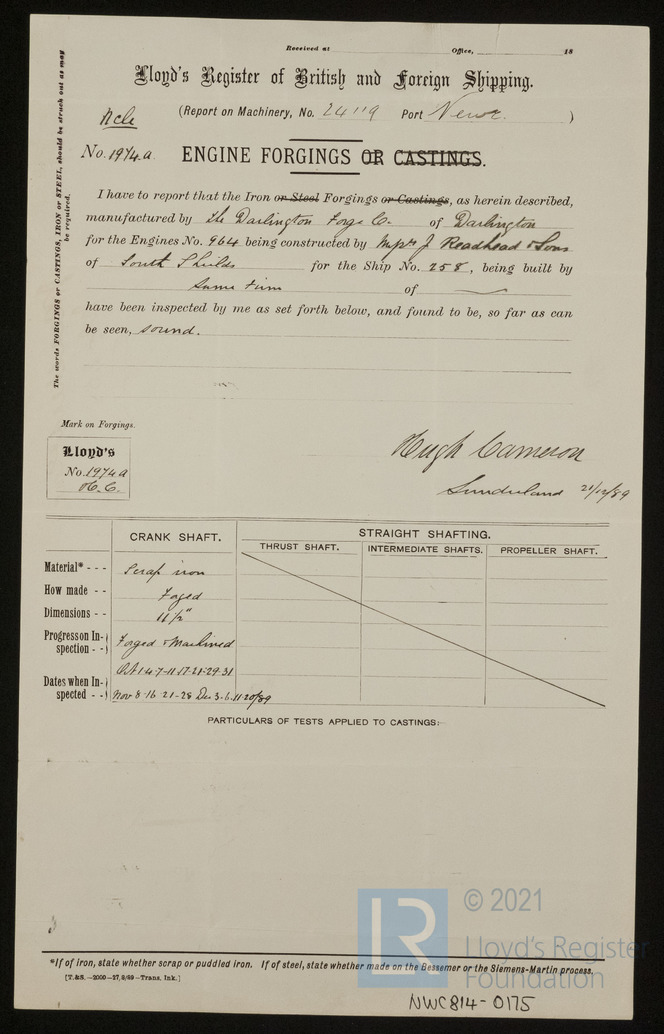 Received at Office, 18
Lloyd's Register of British and Foreign Shipping.
(Report on Machinery, No. 24119 Port Newc. )
Ncle
No. 1974a ENGINE FORGINGS OR CASTINGS.
The words FORGINGS or CASTINGS, IRON or STEEL, should be struck out as may be required.
I have to report that the Iron or Steel Forgings or Castings, as herein described,
manufactured by The Darlington Forge Co. of Darlington
for the Engines No. 964 being constructed by Mess J Readhead & Sons
of South Shields for the Ship No. 258, being built by
Same Firm of
have been inspected by me as set forth below, and found to be, so far as can
be seen, sound.
Mark on Forgings.
Lloyd's
No. 1974a
H.C.
Hugh Cameron
Sunderland 21/12/89
CRANK SHAFT. STRAIGHT SHAFTING.
THRUST SHAFT. INTERMEDIATE SHAFTS. PROPELLER SHAFT.
Material* - - - Scrap iron
How made - - Forged
Dimensions - - 11 1/2"
Progress on In-
spection - - Forged & Machined
Oct 1-4-7-11-17-21-29-31
Dates when In-
spected - - Nov 8-16-21-28 Dec 3-6-11-20/89
PARTICULARS OF TESTS APPLIED TO CASTINGS:—
*If of iron, state whether scrap or puddled iron. If of steel, state whether made on the Bessemer or the Siemens-Martin process.
[T.&S.—2000—27,9/89—Trans. Ink.]
LR © 2021
Lloyd's Register
Foundation
NWC814-0175